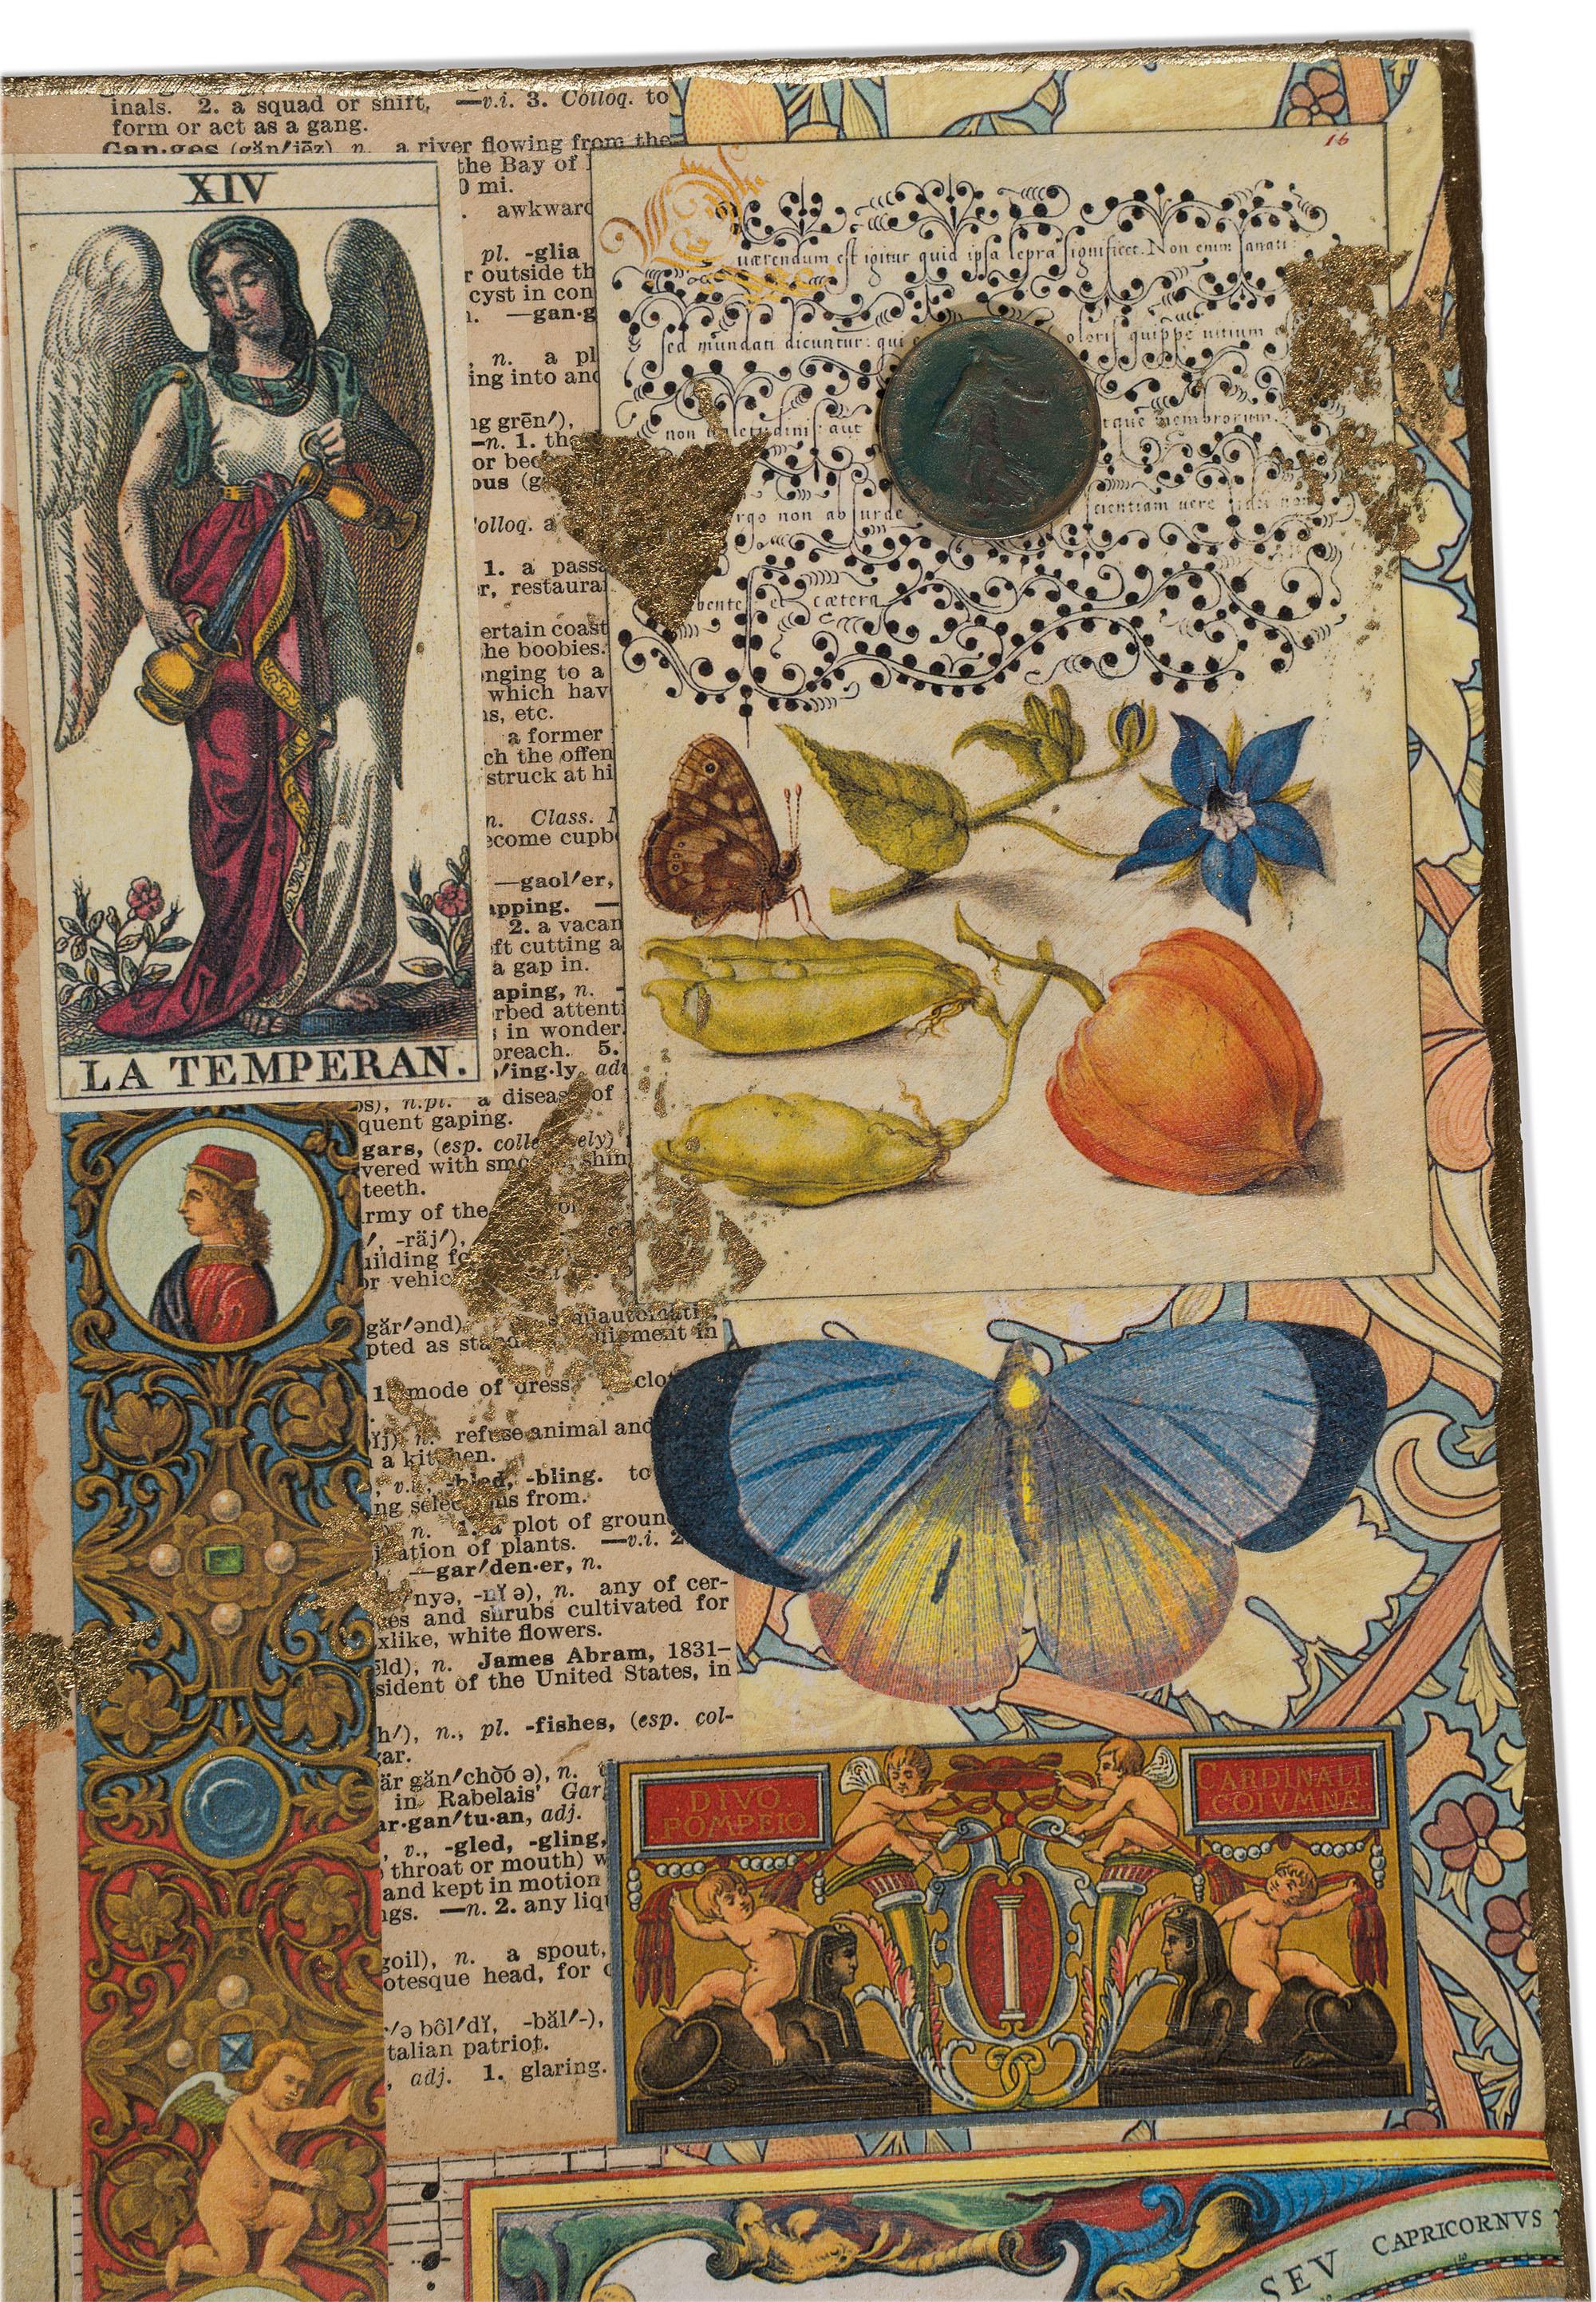 inals. 2. a squad or shift, —v.i. 3. Colloq. to
form or act as a gang.
Gan·ges (găn′jēz) n. a river flowing from the
the Bay of
0 mi.
awkward
pl. -glia
r outside th
cyst in con
—gan·g
n. a pl
ing into and
ng grēn′),
—n. 1. the
or bec
ous (g
Colloq. a
1. a passa
r, restaura
ertain coast
he boobies.
onging to a
which hav
ns, etc.
a former
ch the offen
struck at hi
n. Class. M
ecome cupb
—gaol′er,
apping. —
2. a vacan
ft cutting a
a gap in.
aping, n. -
rbed attenti
s in wonder.
breach. 5.
′ing·ly, adv
os), n.pl. a disease of
quent gaping.
gars, (esp. collectively)
vered with smooth, shin
teeth.
army of the
′, -räj′),
uilding fo
or vehic
gär′ənd)
pted as standard equipment in
1. mode of dress. clot
ĭj) n. refuse animal and
a kitchen.
v.t., -bled, -bling. to
ng selections from.
n. 1. a plot of ground
ation of plants. —v.i. 2.
—gar′den·er, n.
′nyə, -nĭ ə), n. any of cer-
es and shrubs cultivated for
xlike, white flowers.
eld), n. James Abram, 1831–
sident of the United States, in
h′), n., pl. -fishes, (esp. col-
gar.
är găn′cho͞o ə), n. t
in Rabelais' Gar
ar·gan′tu·an, adj.
, v., -gled, -gling,
throat or mouth) w
and kept in motion
ngs. —n. 2. any liqu
goil), n. a spout,
otesque head, for c
′ə bôl′dĭ, -băl′-),
talian patriot.
, adj. 1. glaring.
XIV
LA TEMPERAN.
16
Quærendum est igitur quid ipsa lepra significet. Non enim sanati
sed mundati dicuntur: qui coloris quippe vitium
non valetudinis: aut atque membrorum
ergo non absurde scientiam vere fidei non
bentes et cætera
DIVO
POMPEIO
CARDINALI
COLVMNÆ
SEV CAPRICORNVS